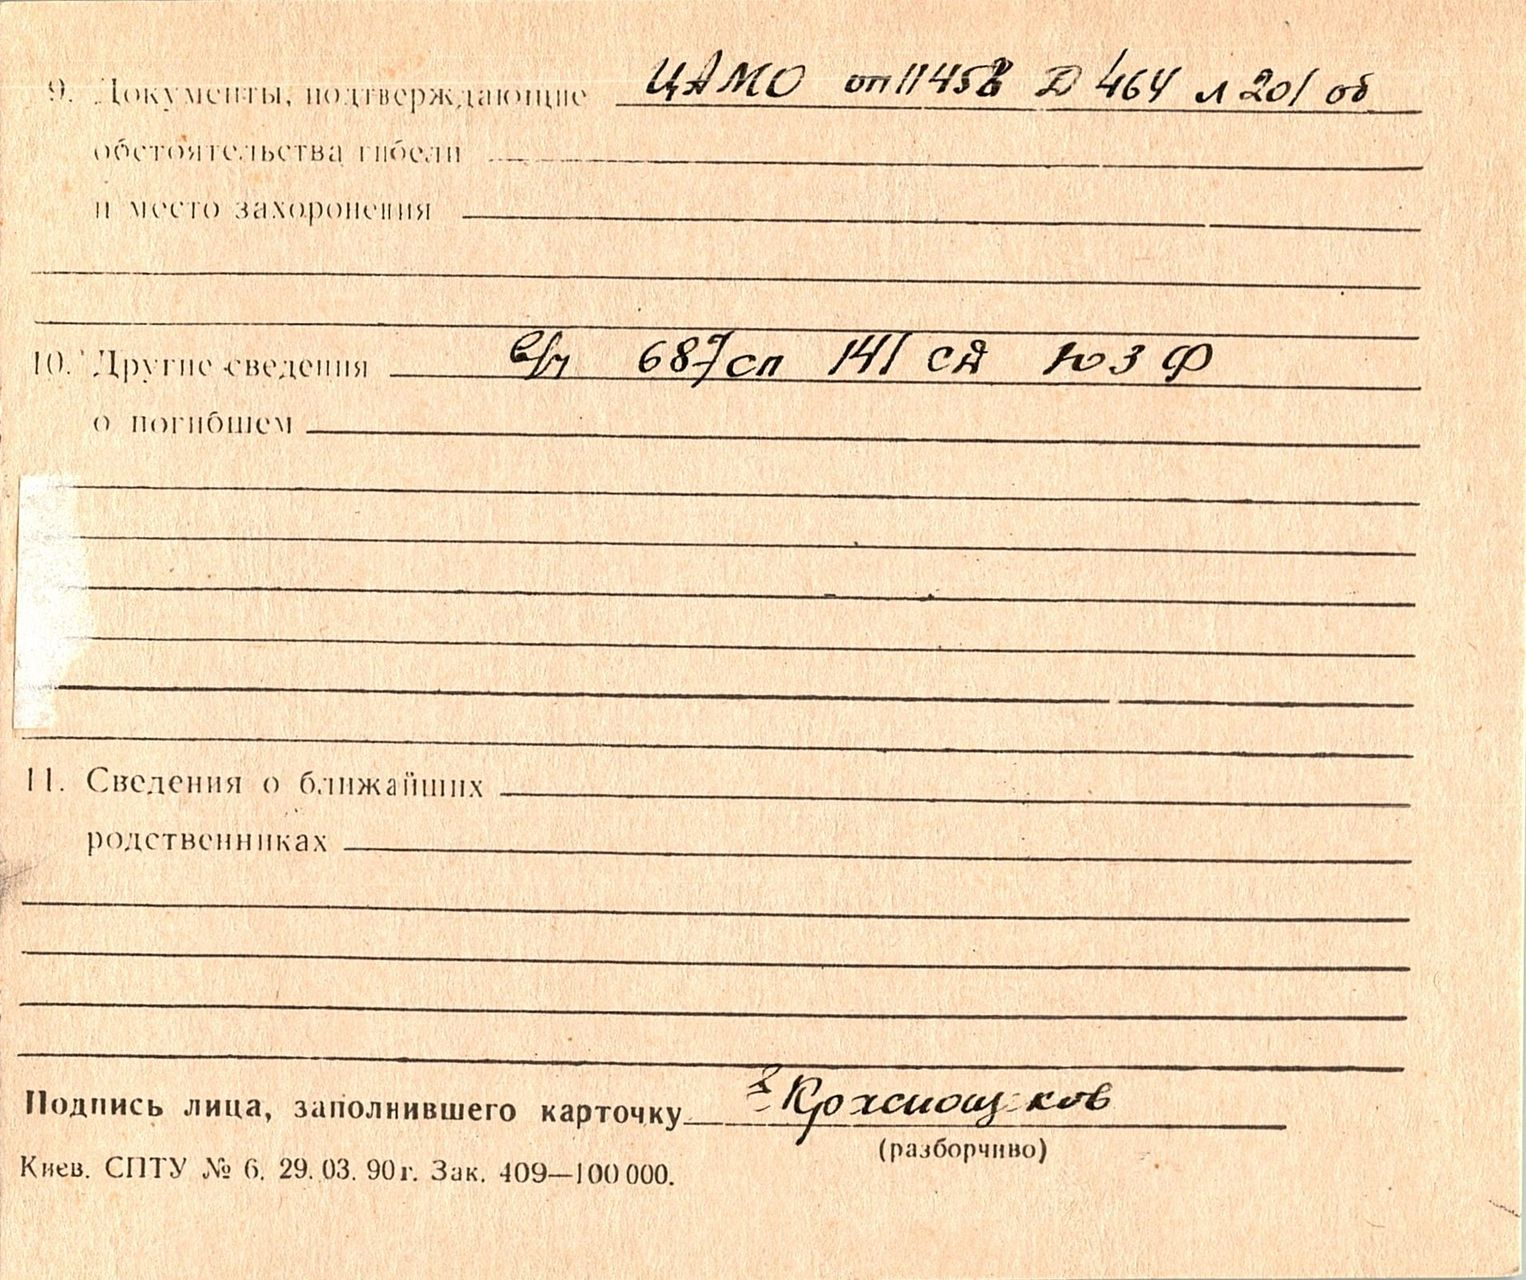 9. Документы, подтверждающие ЦАМО оп 11458 Д 464 л 201 об
обстоятельства гибели
и место захоронения
10. Другие сведения в/ч 687 сп 141 сд ЮЗФ
о погибшем
11. Сведения о ближайших
родственниках
Подпись лица, заполнившего карточку Краснощеков
(разборчиво)
Киев. СПТУ № 6. 29. 03. 90 г. Зак. 409—100 000.